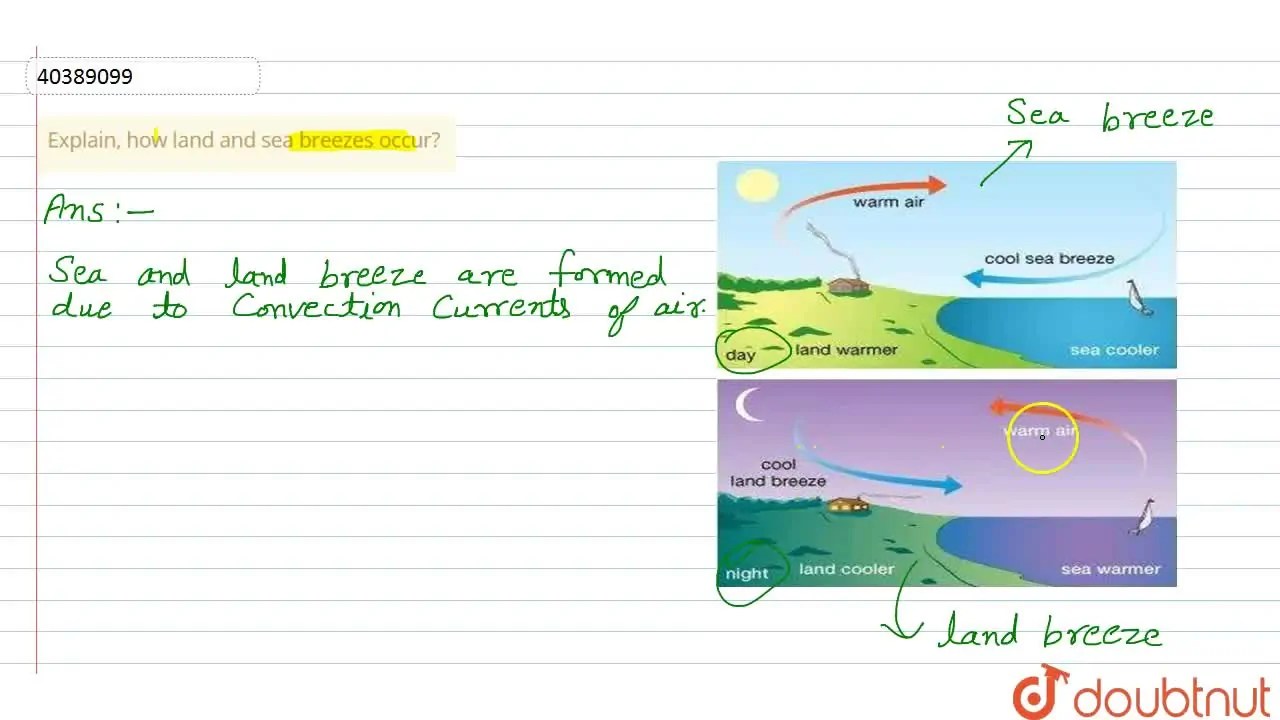 40389099
Explain, how land and sea breezes occur?
Ans :-
Sea and land breeze are formed
due to Convection Currents of air.
Sea breeze
warm air
cool sea breeze
day
land warmer
sea cooler
warm air
cool
land breeze
night
land cooler
sea warmer
land breeze
doubtnut